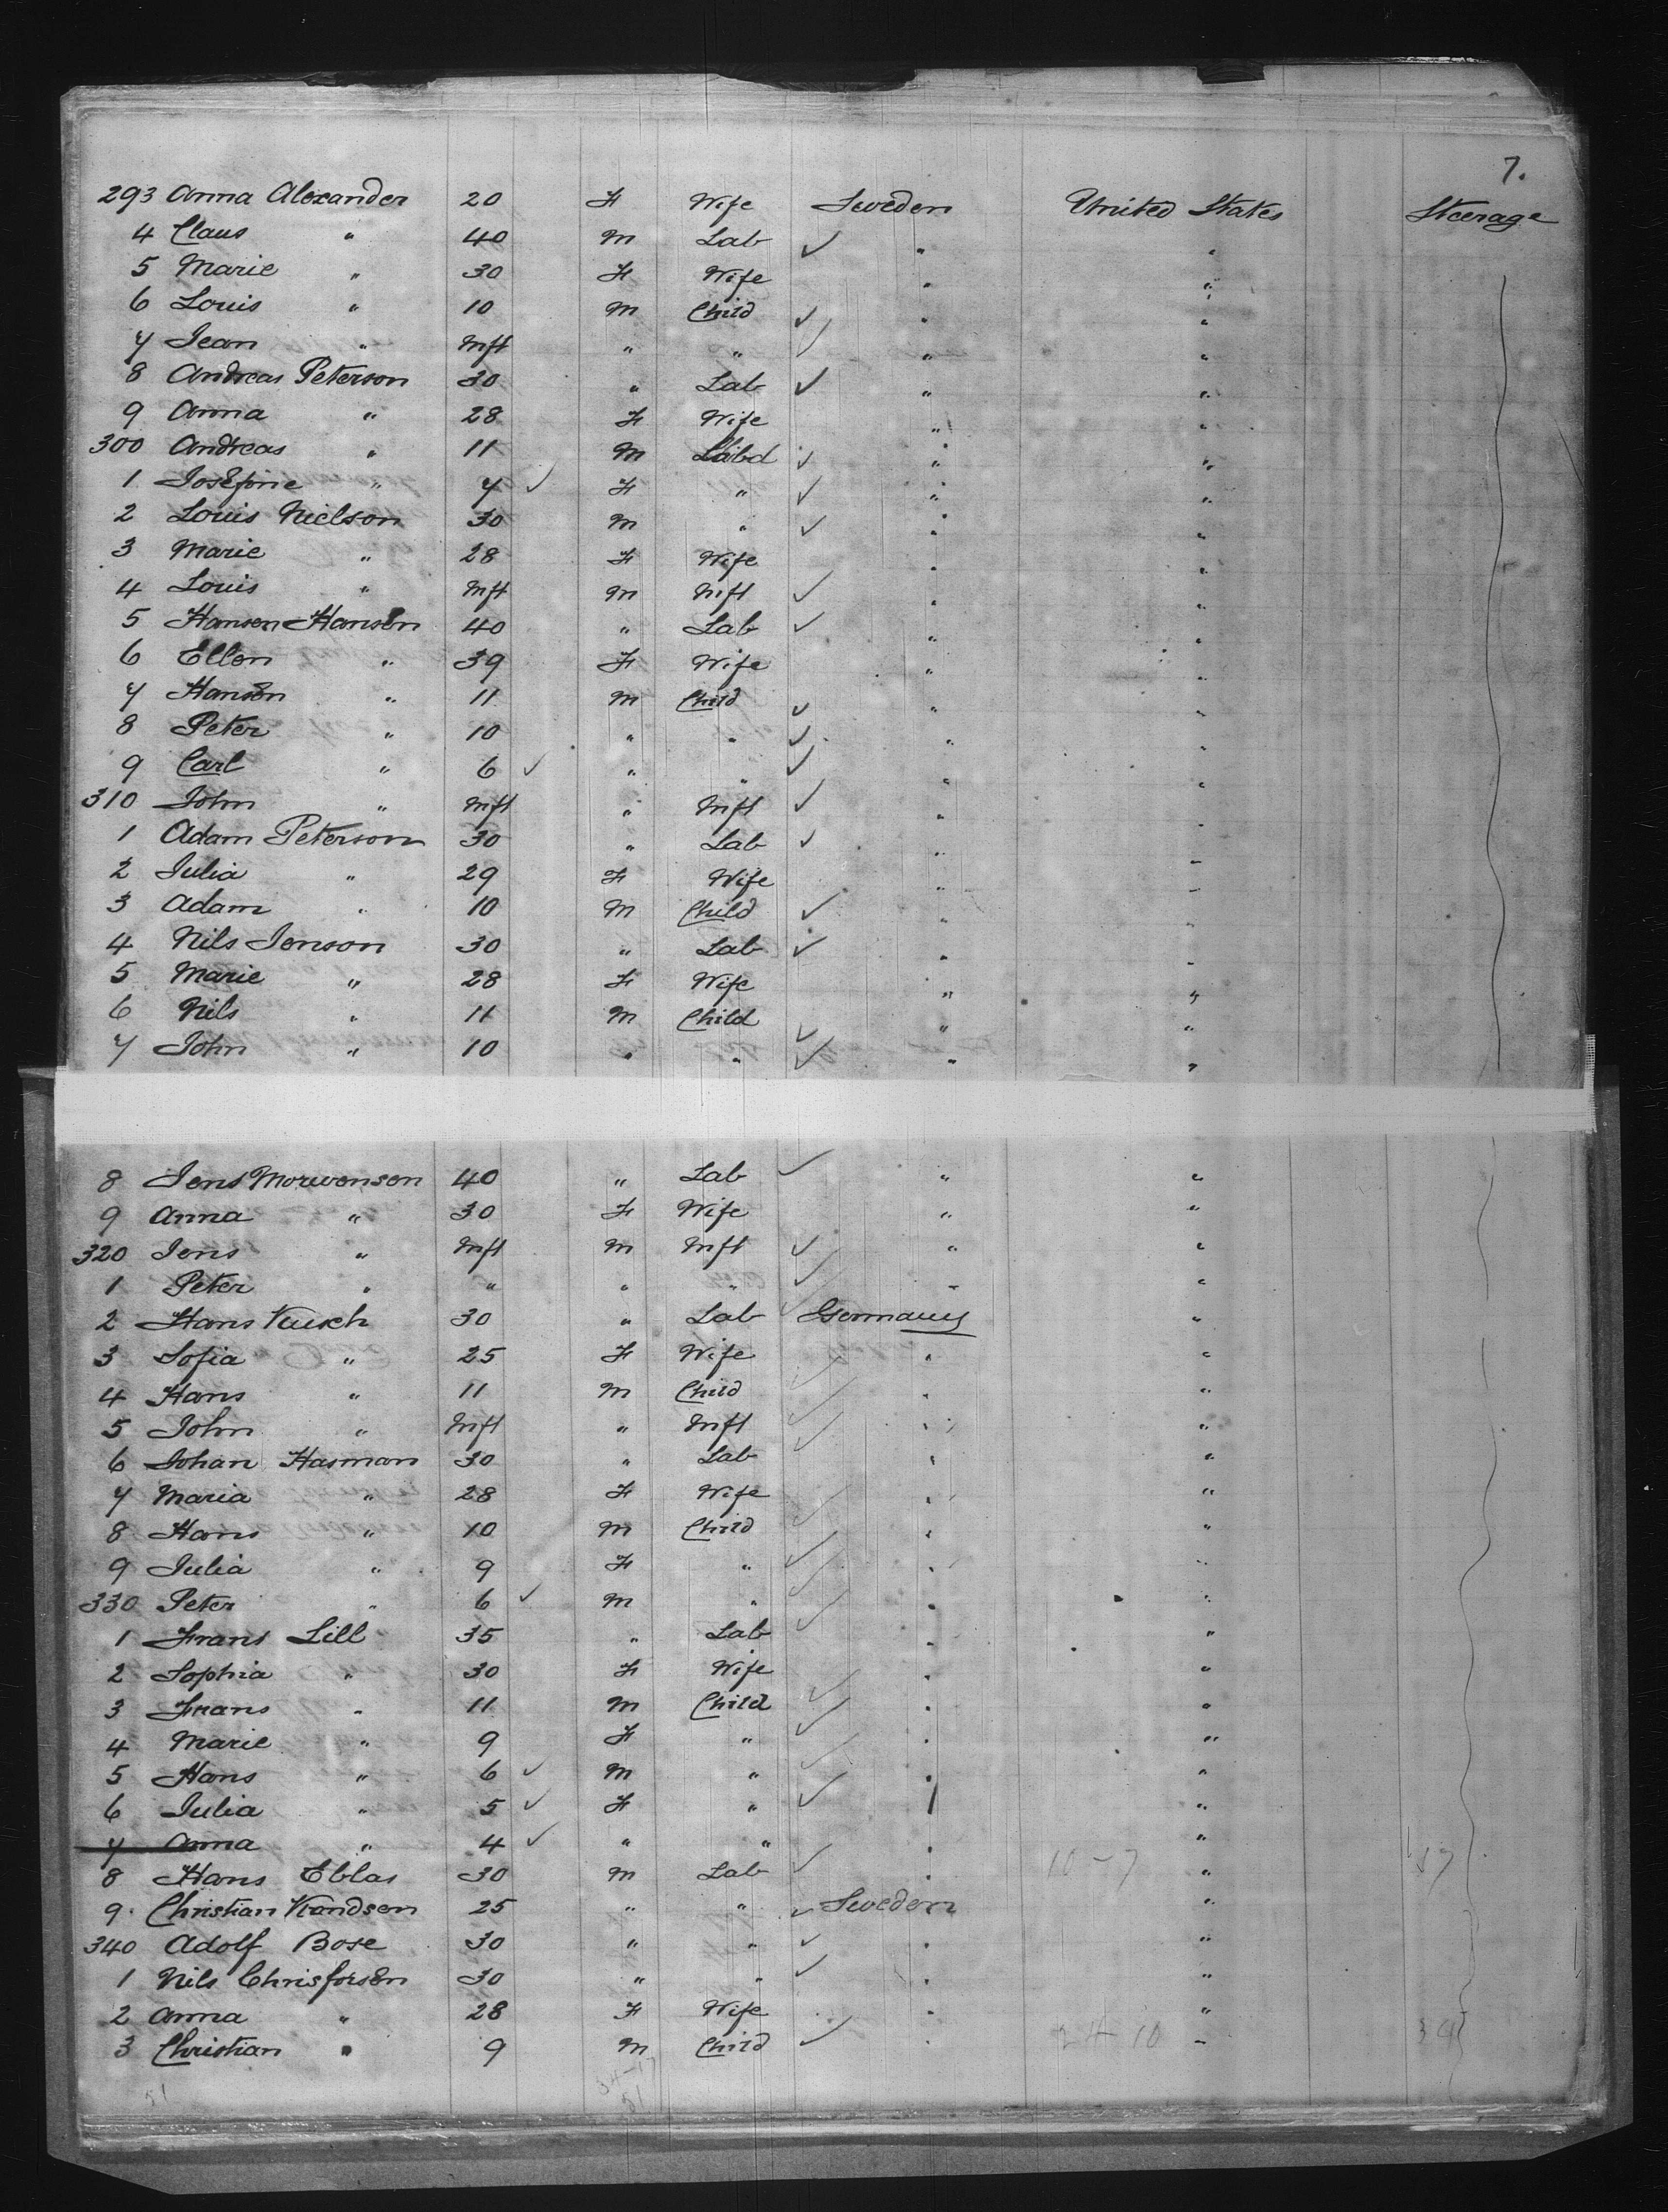 7.
293 Anna Alexander 20 F Wife Sweden United States Steerage
4 Claus " 40 M Lab ✓ " "
5 Marie " 30 F Wife " "
6 Louis " 10 M Child ✓ " "
7 Jean " Inft " " ✓ " "
8 Andreas Peterson 30 " Lab ✓ " "
9 Anna " 28 F Wife " "
300 Andreas " 11 M ✓ " "
1 Josefine " 7 ✓ F " ✓ " "
2 Louis Nielson 30 M " ✓ " "
3 Marie " 28 F Wife " "
4 Louis " Inft M Inft ✓ " "
5 Hansen Hansen 40 " Lab ✓ " "
6 Ellen " 39 F Wife " "
7 Hansen " 11 M Child ✓ " "
8 Peter " 10 " " ✓ " "
9 Carl " 6 ✓ " " ✓ " "
310 John " Inft " Inft ✓ " "
1 Adam Peterson 30 " Lab ✓ " "
2 Julia " 29 F Wife " "
3 Adam " 10 M Child ✓ " "
4 Nils Jenson 30 " Lab ✓ " "
5 Marie " 28 F Wife " "
6 Nils " 11 M Child ✓ " "
7 John " 10 " " ✓ " "
8 Jens 40 " Lab ✓ " "
9 Anna " 30 F Wife " "
320 Jens " Inft M Inft ✓ " "
1 Peter " " " " ✓ " "
2 Hans 30 " Lab ✓ Germany "
3 Sofia " 25 F Wife " "
4 Hans " 11 M Child ✓ " "
5 John " Inft " Inft ✓ " "
6 Johan Hasman 30 " Lab ✓ " "
7 Maria " 28 F Wife " "
8 Hans " 10 M Child ✓ " "
9 Julia " 9 F " ✓ " "
330 Peter " 6 ✓ M " ✓ " "
1 Frans Lill 35 " Lab ✓ " "
2 Sophia " 30 F Wife " "
3 Frans " 11 M Child ✓ " "
4 Marie " 9 F " ✓ " "
5 Hans " 6 ✓ M " ✓ " "
6 Julia " 5 ✓ F " ✓ " "
7 Anna " 4 ✓ " " " "
8 Hans Eblas 30 M Lab ✓ " 10-7 "
9 Christian Kandsen 25 " " ✓ Sweden "
340 Adolf Bose 30 " " ✓ " "
1 Nils Chrisforsen 30 " " ✓ " "
2 Anna " 28 F Wife " "
3 Christian " 9 M Child ✓ " "
51
34-17
51